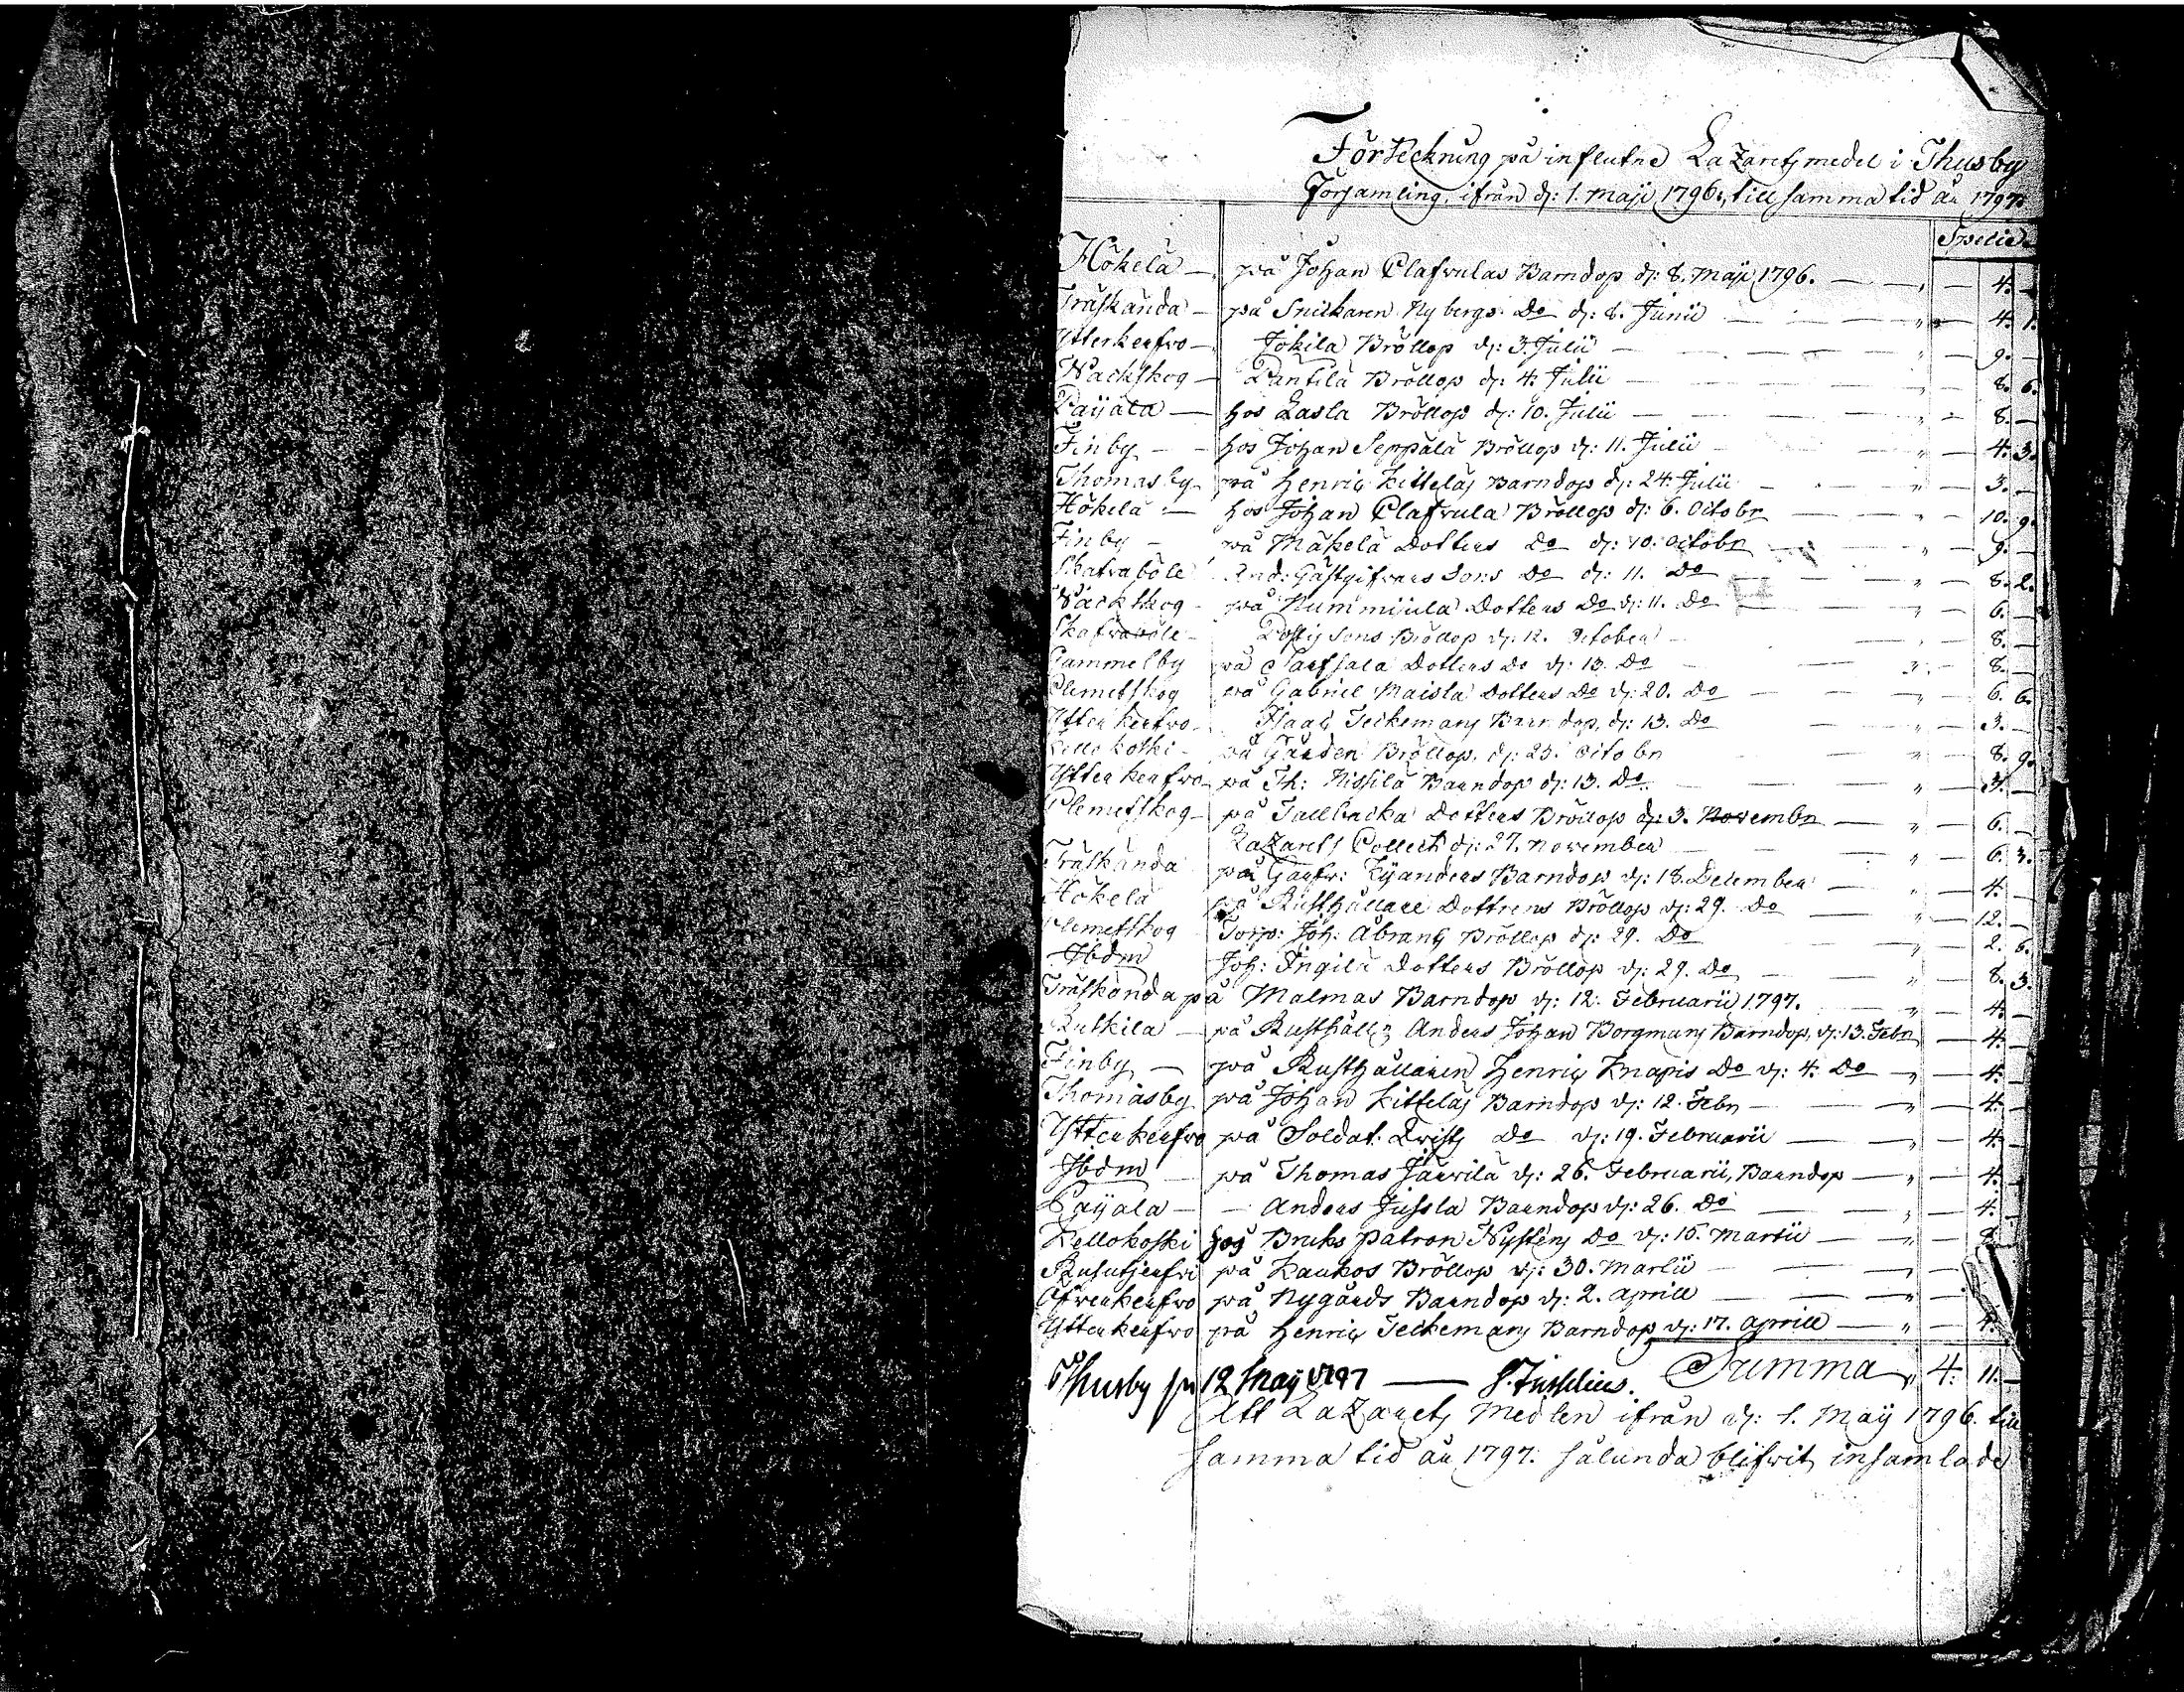 Förteckning på influtne Lazaretz medel i Thusby
Församling, ifrån d: 1. Maji 1796, till samma tid år 1797.
Specie
Hökelä — på Johan Clafvulas Barndop d: 8. Maji 1796. — „ — 4. —
Träskända — på Snickaren Nybergs Do d: 8. Junii — „ — 4. 1.
Ytterkerfvo — Jokila Bröllop d: 3. Julii — „ — 9. —
Nackskog — Pantila Bröllop d: 4. Julii — „ — 8. 6.
Payala — hos Lasla Bröllop d: 10. Julii — „ — 8. —
Finby — hos Johan Seppälä Bröllop d: 11. Julii — „ — 4. 3.
Thomasby — på Henric Kittelas Barndop d: 24. Julii — „ — 3. —
Hökelä — hos Johan Clafvula Bröllop d: 6. Octobr — „ — 10. 9.
Finby — på Mäkelä Dotters Do d: 10. Octobr — „ — 9. —
Skafvaböle And: Gästgifvars Sons Do d: 11. Do — „ — 8. 2.
Nackskog — på Nummiula Dotters Do d: 11. Do — „ — 6. —
Skafvaböle — Sons Bröllop d: 12. October — „ — 8. —
Gammelby på Dotters Do d: 13. Do — „ — 8. —
Clemetskog på Gabriel Maisla Dotters Do d: 20. Do — „ — 6. 6.
Ytterkerfvo — Isaac Teckemans Barndop, d: 13. Do — „ — 3. —
Kellokoski — på Gården Bröllop, d: 23. Octobr — „ — 8. 9.
Ytterkerfvo — på Th: Nissilä Barndop d: 13. Do — „ — 3. —
Clemetskog — på Tallbacka Dotters Bröllop d: 3. Novembr — „ — 6. —
Lazarets Collect d: 27. November — „ — 6. 3.
Träskända på Garfv: Kyanders Barndop d: 18. December — „ — 4. —
Hökelä på Rusthållare Dottrens Bröllop d: 29. Do — „ — 12. —
Clemetskog Torp: Joh: Abrams Bröllop d: 29. Do — 2. 6.
Ibdm Joh: Ingilä Dotters Bröllop d: 29. Do — „ — 8. 3.
Träskända på Malmas Barndop d: 12. Februarii 1797. — „ — 4. —
Rutkila — på Rusthåll: Anders Johan Borgmans Barndop, d: 13. Febr — 4. —
Finby — på Rusthållaren Henric Knapis Do d: 4. Do — „ — 4. —
Thomasby på Johan Kittelas Barndop d: 12. Febr — „ — 4. —
Ytterkerfvo på Soldat: Qvists Do d: 19. Februarii — „ — 4. —
Ibdm — på Thomas Järvilä d: 26. Februarii, Barndop — „ — 4. —
Payala — — Anders Jussla Barndop d: 26. Do — „ — 4. —
Kellokoski hos Bruks Patron Nysténs Do d: 15. Martii — „ — 8.
Rusutjerfvi på Kaukos Bröllop d: 30. Martii — „ —
Öfverkerfvo på Nygårds Barndop d: 2. Aprill — „ —
Ytterkerfvo på Henric Teckemans Barndop d: 17. Aprill — „ — 4.
Summa „ 4. 11. —
Thusby 12 May 1797 —
Att Lazarets Medlen ifrån d: 1. May 1796. till
samma tid år 1797. sålunda blifvit insamlade